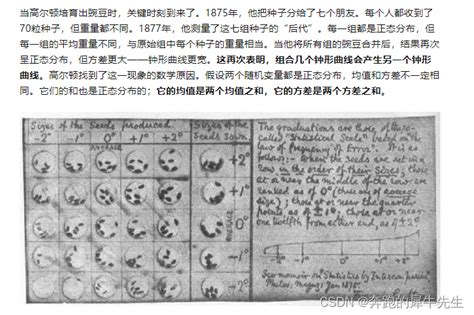 当高尔顿培育出豌豆时，关键时刻到来了。1875年，他把种子分给了七个朋友。每个人都收到了
70粒种子，但重量都不同。1877年，他测量了这七组种子的“后代”。每一组都是正态分布，但
每一组的平均重量不同，与原始组中每个种子的重量相当。当他将所有组的豌豆合并后，结果再次
呈正态分布，但方差更大——钟形曲线更宽。这再次表明，组合几个钟形曲线会产生另一个钟形
曲线。高尔顿找到了这一现象的数学原因。假设两个随机变量都是正态分布，均值和方差不一定相
同。它们的和也是正态分布的；它的均值是两个均值之和，它的方差是两个方差之和。
Sizes of the Seeds produced
Sizes of the Seeds sown
-2° -1° 0° +1° +2°
PRODUCE
+2°
+1°
0°
-1°
-2°
PRODUCE
The graduations are those of the so-
called "Statistical Scale" based on the
law of Frequency of Error". It is as
follows:- When the seeds are set in a
row in the order of their Sizes; those
at or near the middle of the row are
ranked as of 0° (these are of average
size); those at or near the quarter
points, as of ±1°; those at or near
one twelfth from either end, as of ±2°
-2° -1° 0° +1° +2°
See memoir on "Statistics by Intercomparison"
Philos. Magaz. Jan 1875.
CSDN @奔跑的犀牛先生